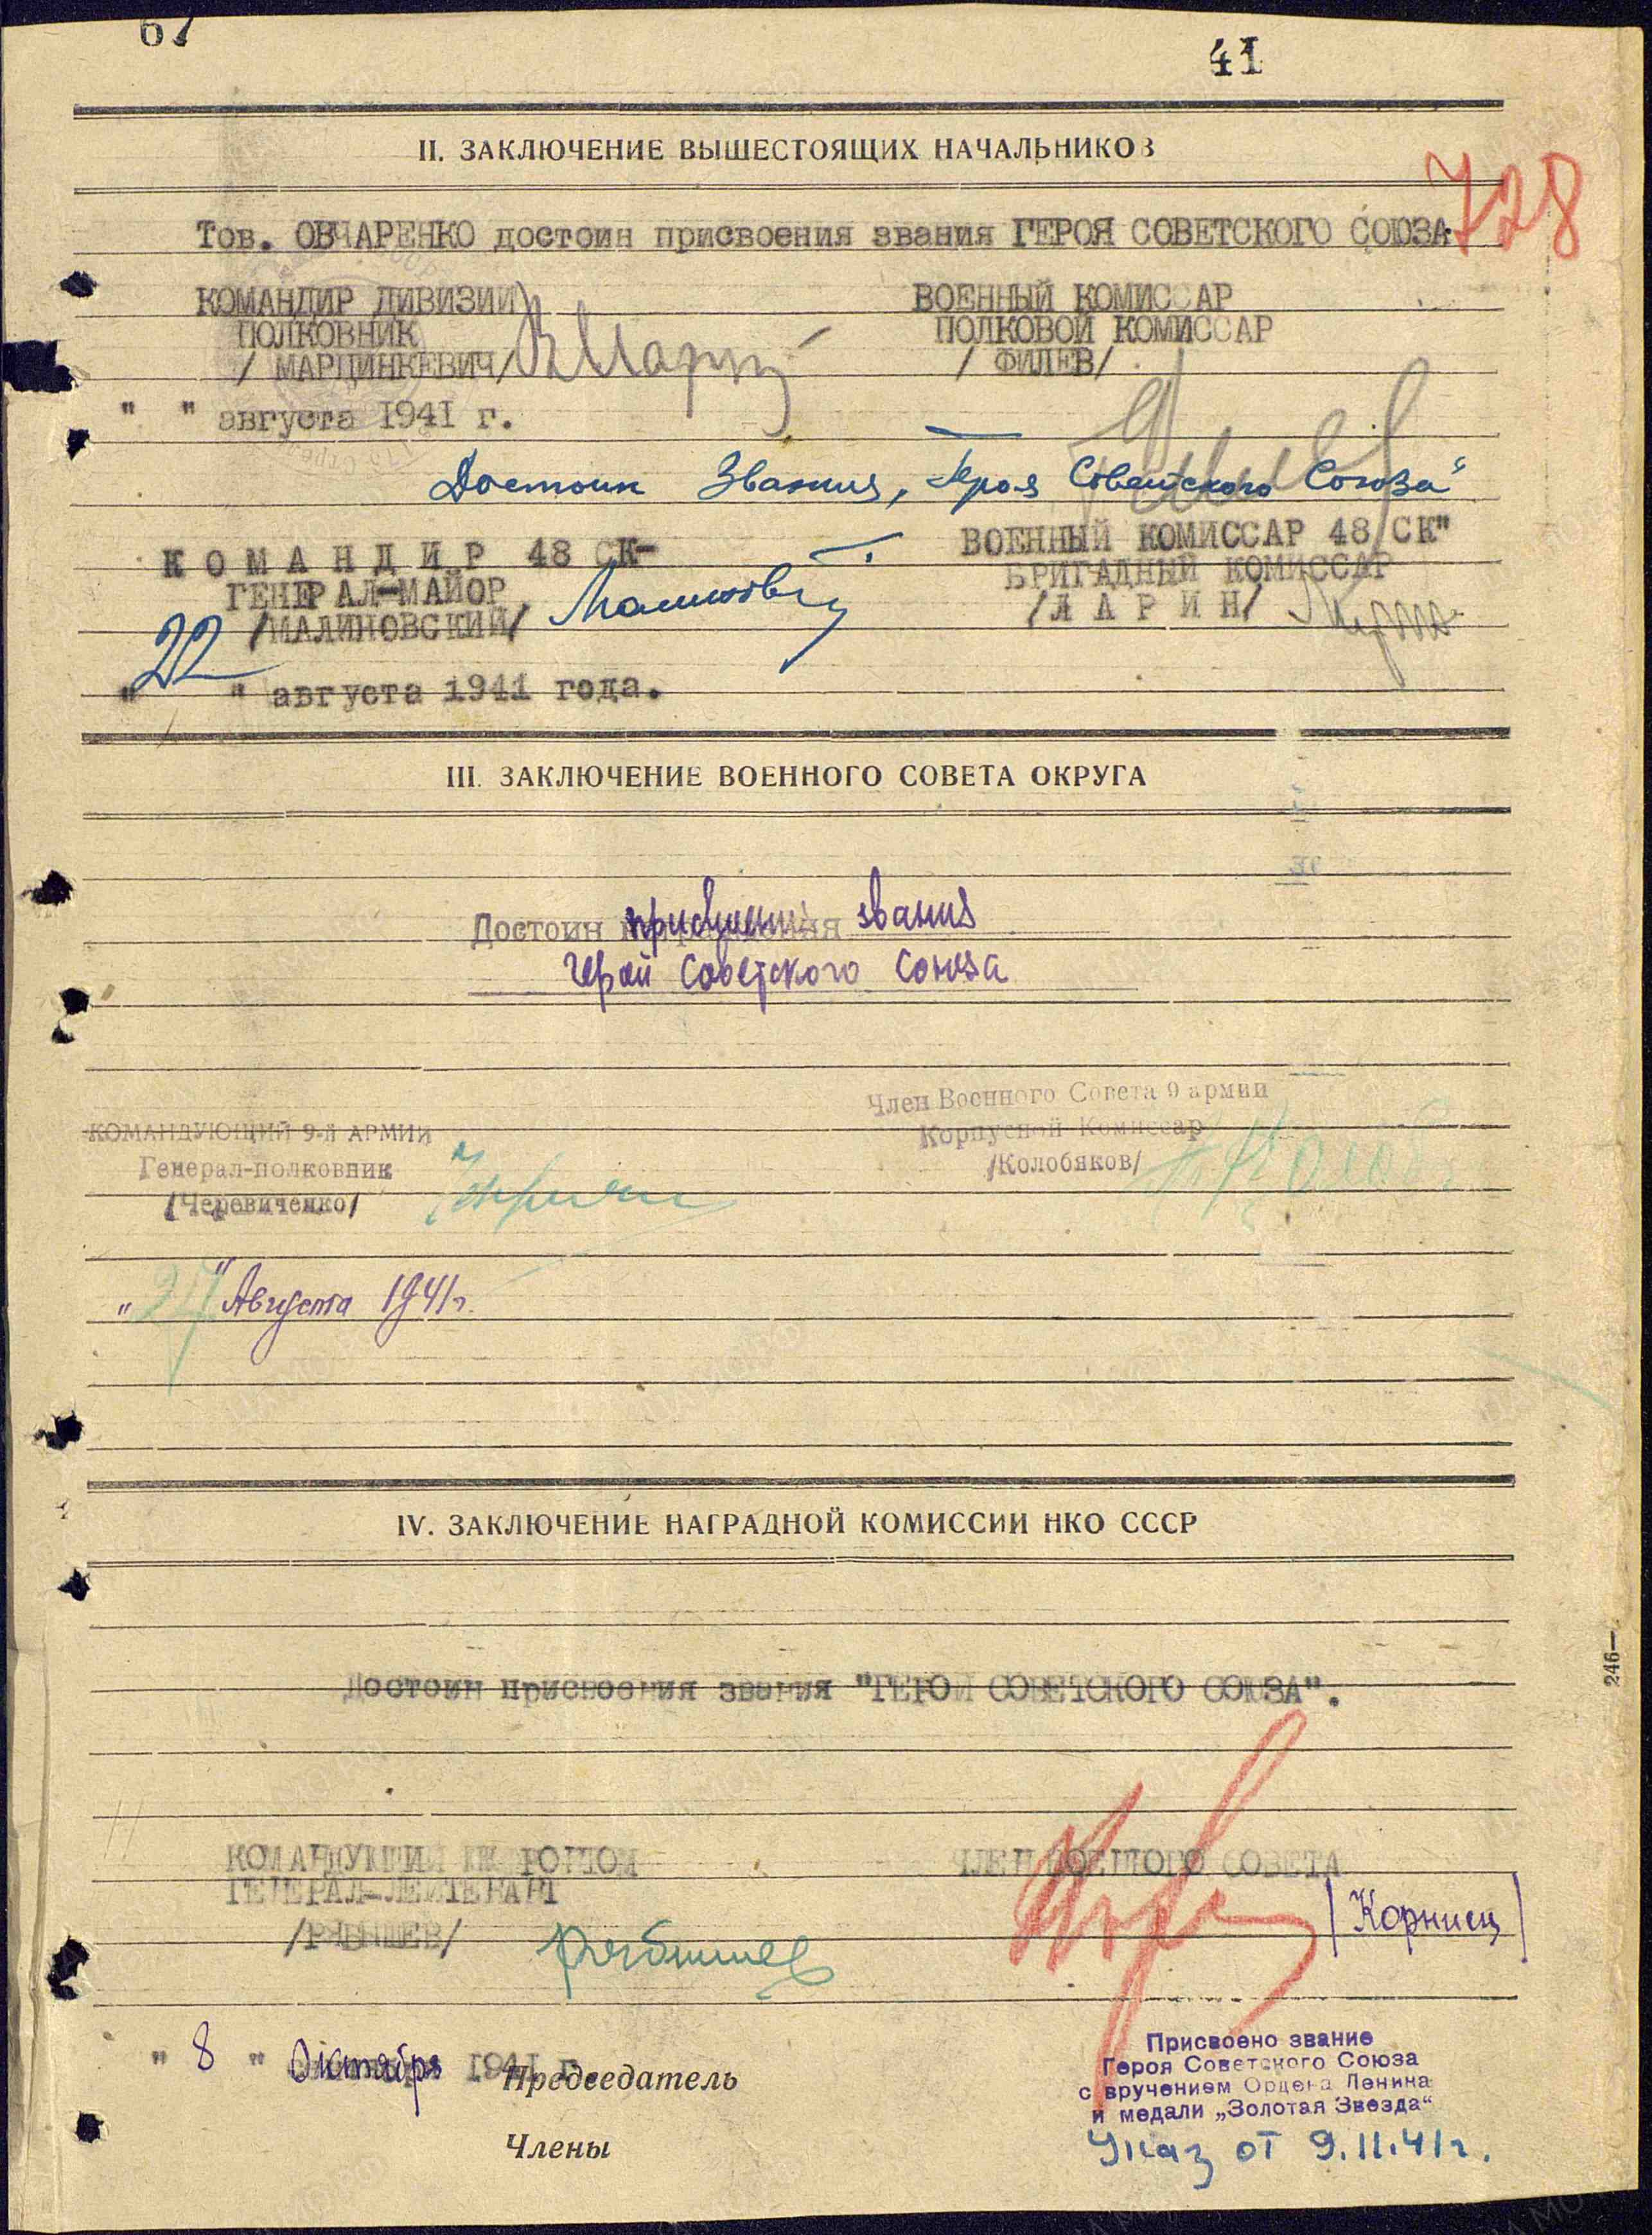 67
41
II. ЗАКЛЮЧЕНИЕ ВЫШЕСТОЯЩИХ НАЧАЛЬНИКОВ
728
Тов. ОВЧАРЕНКО достоин присвоения звания ГЕРОЯ СОВЕТСКОГО СОЮЗА
КОМАНДИР ДИВИЗИИ
ПОЛКОВНИК
/ МАРЦИНКЕВИЧ/
ВОЕННЫЙ КОМИССАР
ПОЛКОВОЙ КОМИССАР
/ ФИЛЕВ/
" " августа 1941 г.
Достоин Звания „Героя Советского Союза"
КОМАНДИР 48 СК-
ГЕНЕРАЛ-МАЙОР
/МАЛИНОВСКИЙ/
ВОЕННЫЙ КОМИССАР 48 СК"
БРИГАДНЫЙ КОМИССАР
/ЛАРИН/
"22" августа 1941 года.
III. ЗАКЛЮЧЕНИЕ ВОЕННОГО СОВЕТА ОКРУГА
Достоин присвоения звания
Герой Советского Союза
КОМАНДУЮЩИЙ 9-й АРМИИ
Генерал-полковник
/Черевиченко/
Член Военного Совета 9 армии
Корпусной Комиссар
/Колобяков/
"27" Августа 1941г.
IV. ЗАКЛЮЧЕНИЕ НАГРАДНОЙ КОМИССИИ НКО СССР
Достоин присвоения звания "ГЕРОЙ СОВЕТСКОГО СОЮЗА".
246—
КОМАНДУЮЩИЙ ЮЖ ФРОНТОМ
ГЕНЕРАЛ-ЛЕЙТЕНАНТ
/РЯБЫШЕВ/
Рябышев
ЧЛЕН ВОЕННОГО СОВЕТА
/Корниец/
" 8 " Октября 1941 г.
Председатель
Члены
Присвоено звание
Героя Советского Союза
с вручением Ордена Ленина
и медали „Золотая Звезда"
Указ от 9.11.41г.